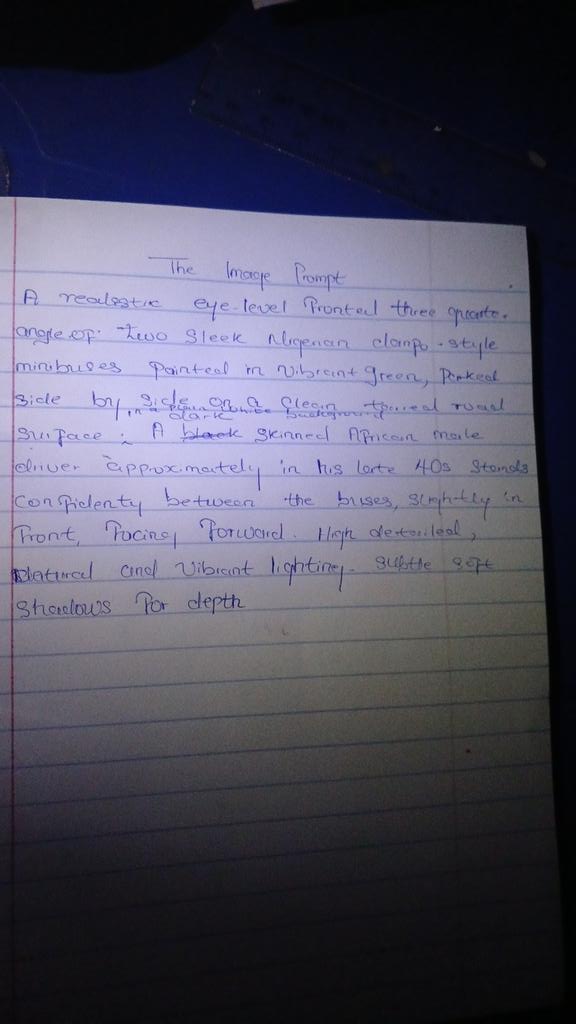 The Image Prompt
A realistic eye-level Frontal three quarter
angle of two Sleek Nigerian danfo-style
minibuses painted in vibrant green, Parked
side by side on a clean tarred road
in a plain white background
surface. A dark skinned African male
driver approximately in his late 40s stands
confidenty between the buses, slightly in
Front, Facing Forward. High detailed,
Natural and Vibrant lighting. Subtle soft
shadows For depth